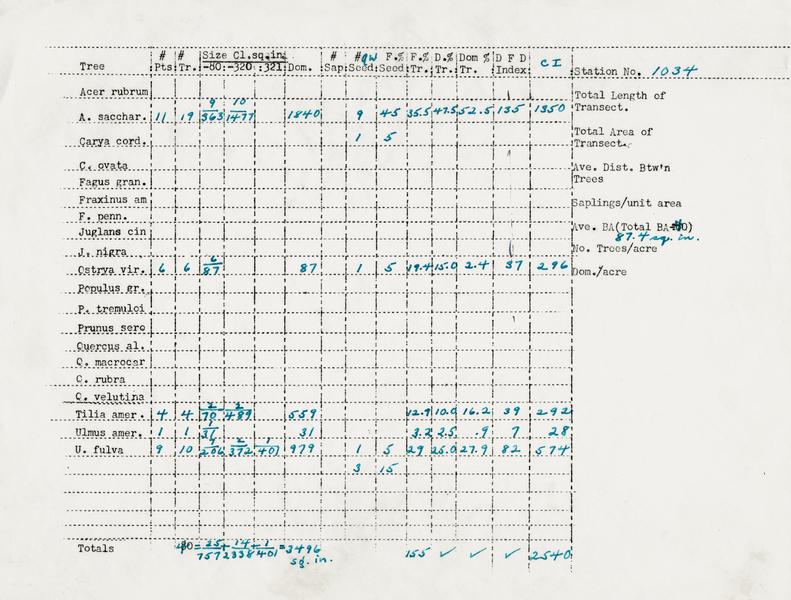 # # Size Cl.sq.in. # # QW F.% F.% D.% Dom % D F D CI
Tree Pts. Tr. -80: -320: :321: Dom. Sap: Seed: Seed Tr. Tr. Tr. Index Station No. 1034
Acer rubrum Total Length of
9 10
A. sacchar. 11 19 363 1477 1840 9 45 35.5 47.5 52.5 135 1350 Transect.
Total Area of
Carya cord. 1 5 Transect.
C. ovata Ave. Dist. Btw'n
Fagus gran. Trees
Fraxinus am
Saplings/unit area
F. penn.
Juglans cin Ave. BA(Total BA 40)
87.4 sq. in.
J. nigra No. Trees/acre
6
Ostrya vir. 6 6 87 87 1 5 19.4 15.0 2.4 37 296 Dom./acre
Populus gr.
P. tremuloi
Prunus sero
Quercus al.
Q. macrocar
Q. rubra
Q. velutina
2 2
Tilia amer. 4 4 70 489 559 12.9 10.0 16.2 39 292
1
Ulmus amer. 1 1 31 31 3.2 2.5 .9 7 28
7 2 1
U. fulva 9 10 206 372 401 979 1 5 29 25.0 27.9 82 574
3 15
Totals 40= 25 + 14 + 1 =3496 155 ✓ ✓ ✓ 2540
757 2338 401 sq. in.